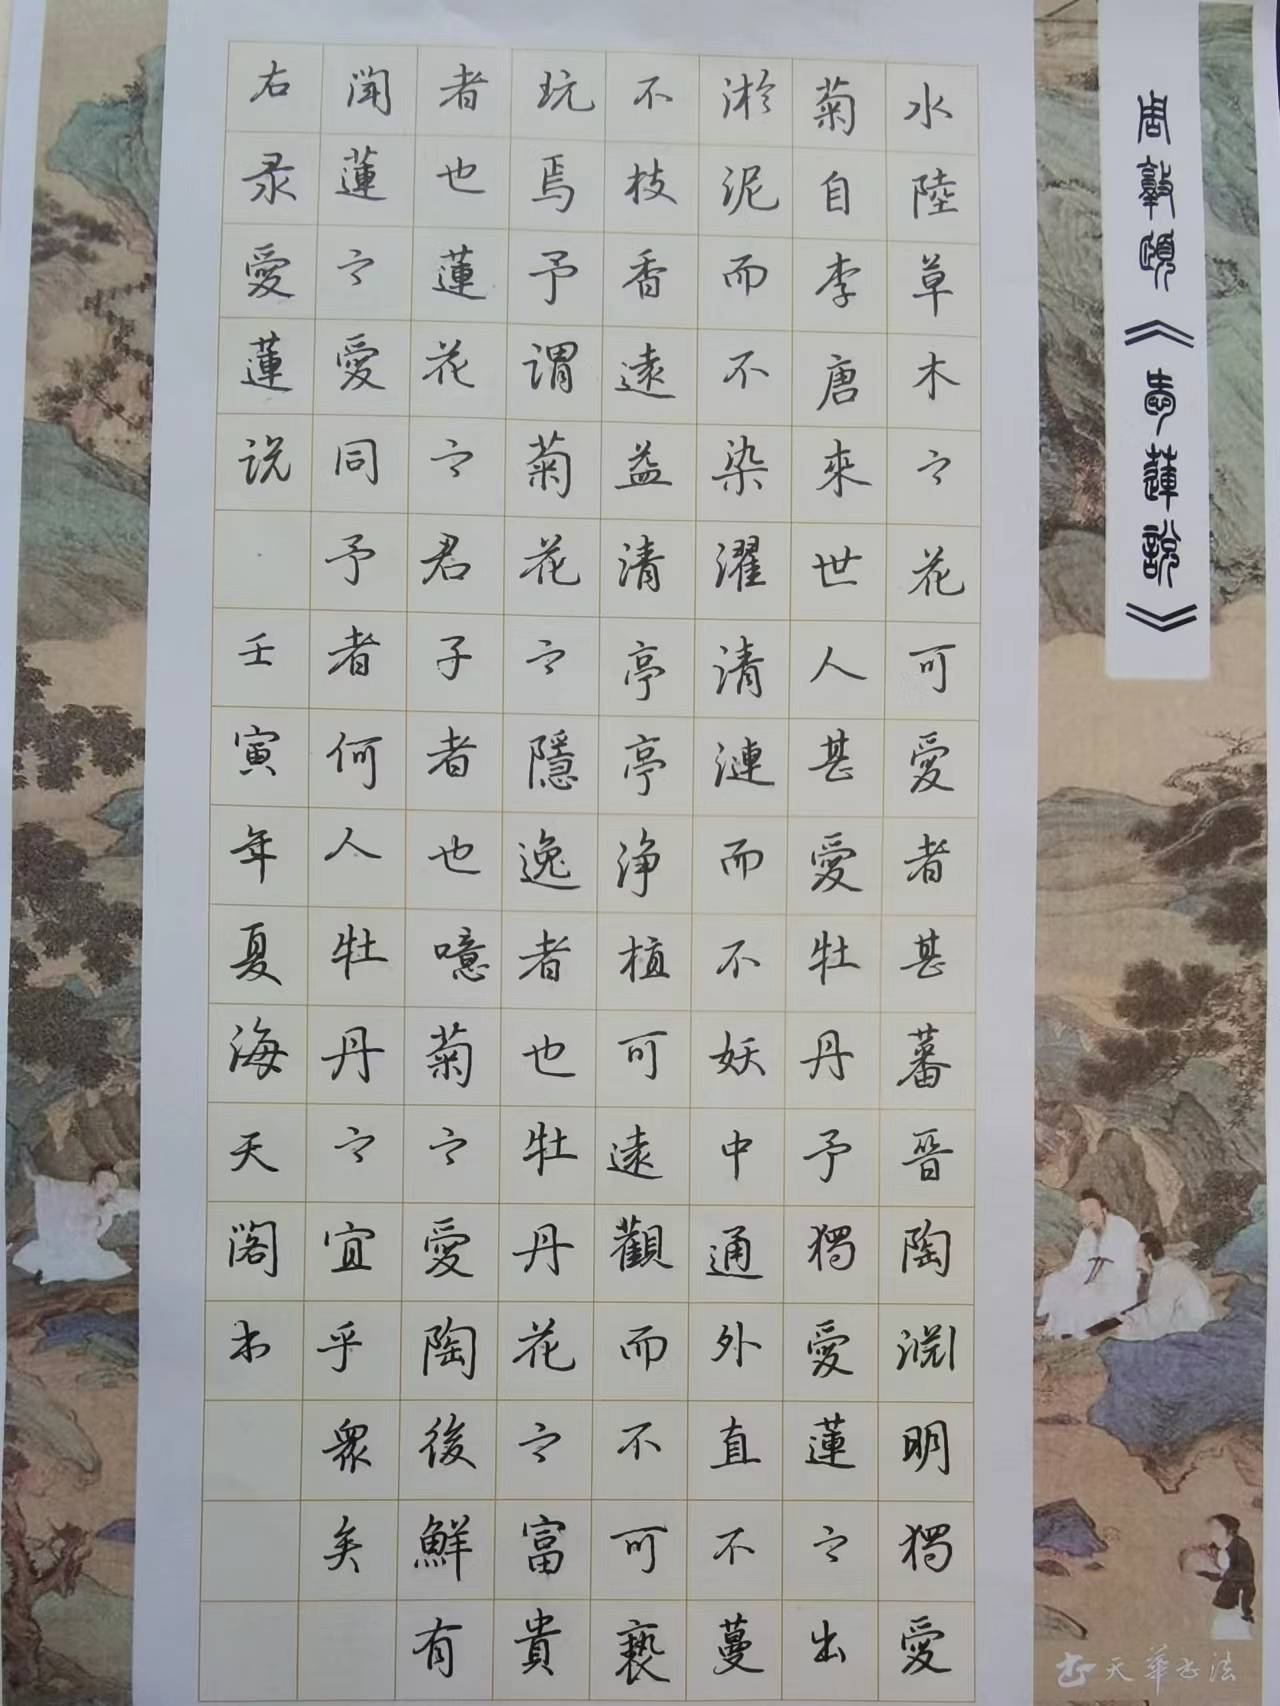 周敦頤《愛蓮說》
水陸草木之花可愛者甚蕃晉陶淵明獨愛
菊自李唐來世人甚愛牡丹予獨愛蓮之出
淤泥而不染濯清漣而不妖中通外直不蔓
不枝香遠益清亭亭净植可遠觀而不可褻
玩焉予謂菊花之隱逸者也牡丹花之富貴
者也蓮花之君子者也噫菊之愛陶後鮮有
聞蓮之愛同予者何人牡丹之宜乎眾矣
右录愛蓮说 壬寅年夏海天閣书
天華书法